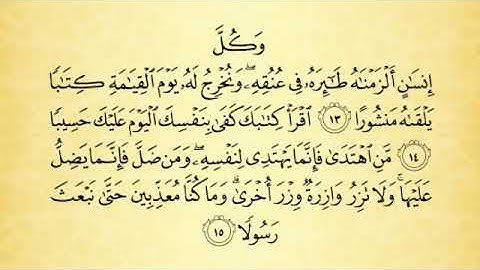 وَكُلَّ
إِنسَٰنٍ أَلۡزَمۡنَٰهُ طَٰٓئِرَهُۥ فِي عُنُقِهِۦۖ وَنُخۡرِجُ لَهُۥ يَوۡمَ ٱلۡقِيَٰمَةِ كِتَٰبٗا
يَلۡقَىٰهُ مَنشُورًا ١٣ ٱقۡرَأۡ كِتَٰبَكَ كَفَىٰ بِنَفۡسِكَ ٱلۡيَوۡمَ عَلَيۡكَ حَسِيبٗا
١٤ مَّنِ ٱهۡتَدَىٰ فَإِنَّمَا يَهۡتَدِي لِنَفۡسِهِۦۖ وَمَن ضَلَّ فَإِنَّمَا يَضِلُّ
عَلَيۡهَاۚ وَلَا تَزِرُ وَازِرَةٞ وِزۡرَ أُخۡرَىٰۗ وَمَا كُنَّا مُعَذِّبِينَ حَتَّىٰ نَبۡعَثَ
رَسُولٗا ١٥